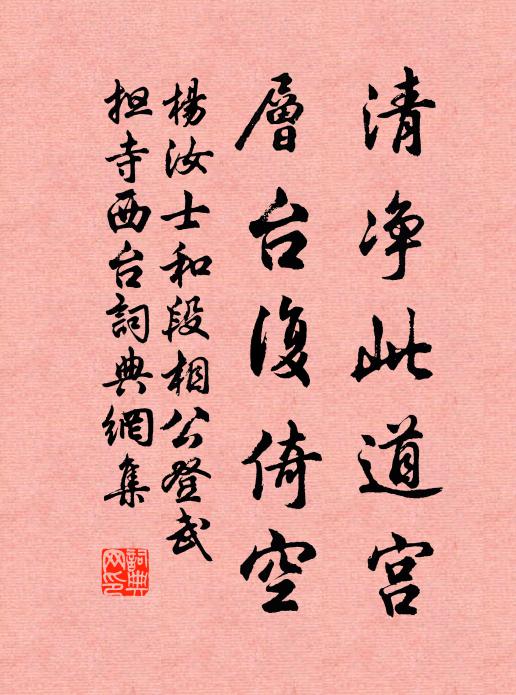 清净此道宫
層台復倚空
楊汝士和段相公登武
担寺西台詞典網集
詞典网印